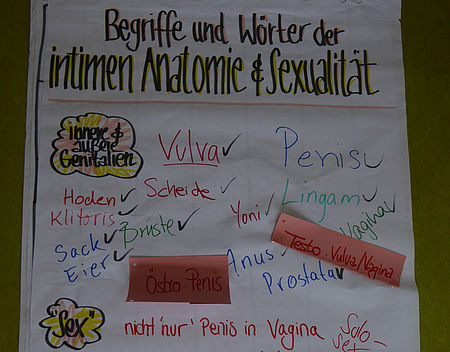 Begriffe und Wörter der
intimen Anatomie & Sexualität
innere &
äußere
Genitalien
Vulva
Penis
Hoden
Scheide
Lingam
Klitoris
Yoni
Vagina
Brüste
Sack
Eier
Anus
Prostata
Östro-Penis
Testo-Vulva/Vagina
"Sex"
nicht 'nur' Penis in Vagina
Solo-